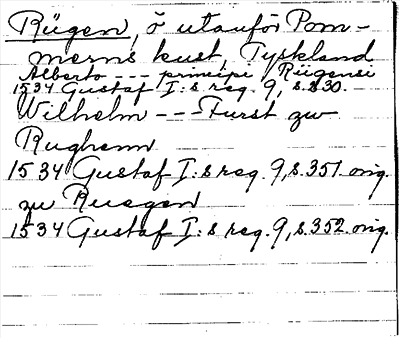 Rügen, ö utanför Pom-
merns kust, Tyskland
Alberto --- principi Rügensi
1534 Gustaf I:s reg. 9, s. 330.
Wilhelm --- Furst zu
Rughenn
1534 Gustaf I:s reg. 9, s. 351. orig.
zu Ruegen
1534 Gustaf I:s reg. 9, s. 352. orig.